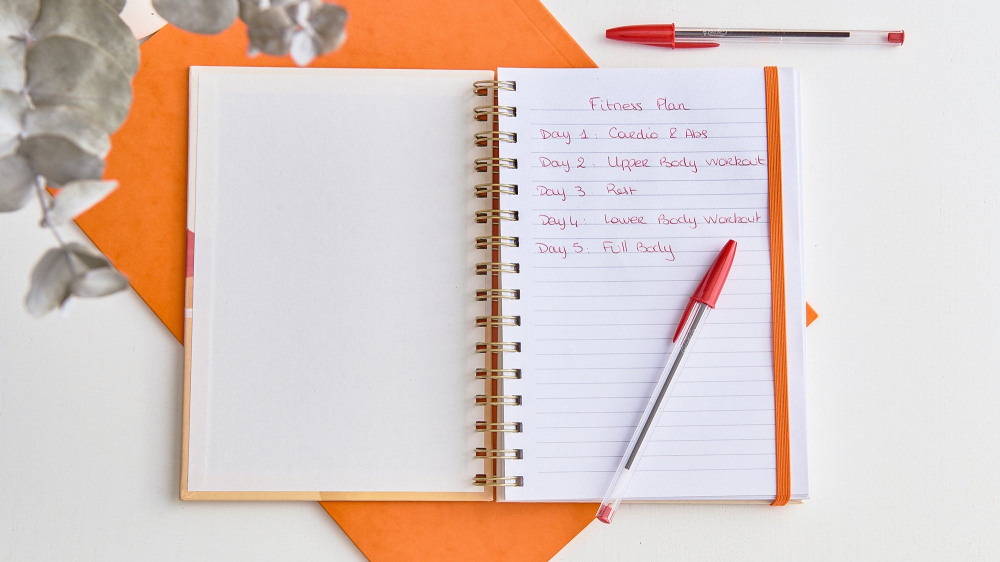 Fitness Plan
Day 1: Cardio & Abs
Day 2: Upper Body workout
Day 3 Rest
Day 4: Lower Body Workout
Day 5: Full Body